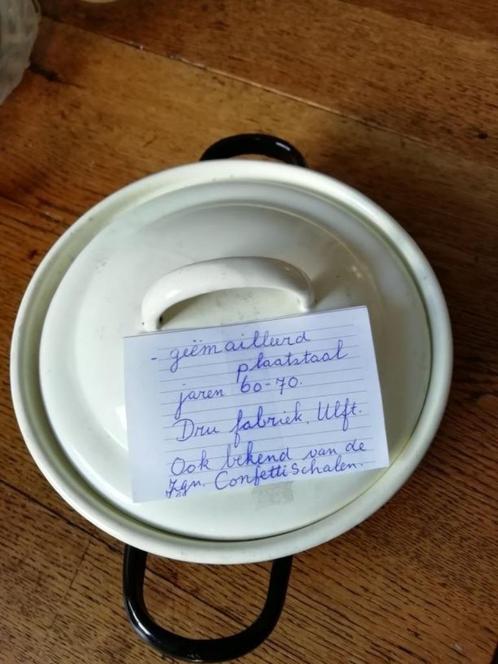 - geëmailleerd
plaatstaal
jaren 60-70.
Dru fabriek, Ulft.
Ook bekend van de
zgn. Confetti schalen.